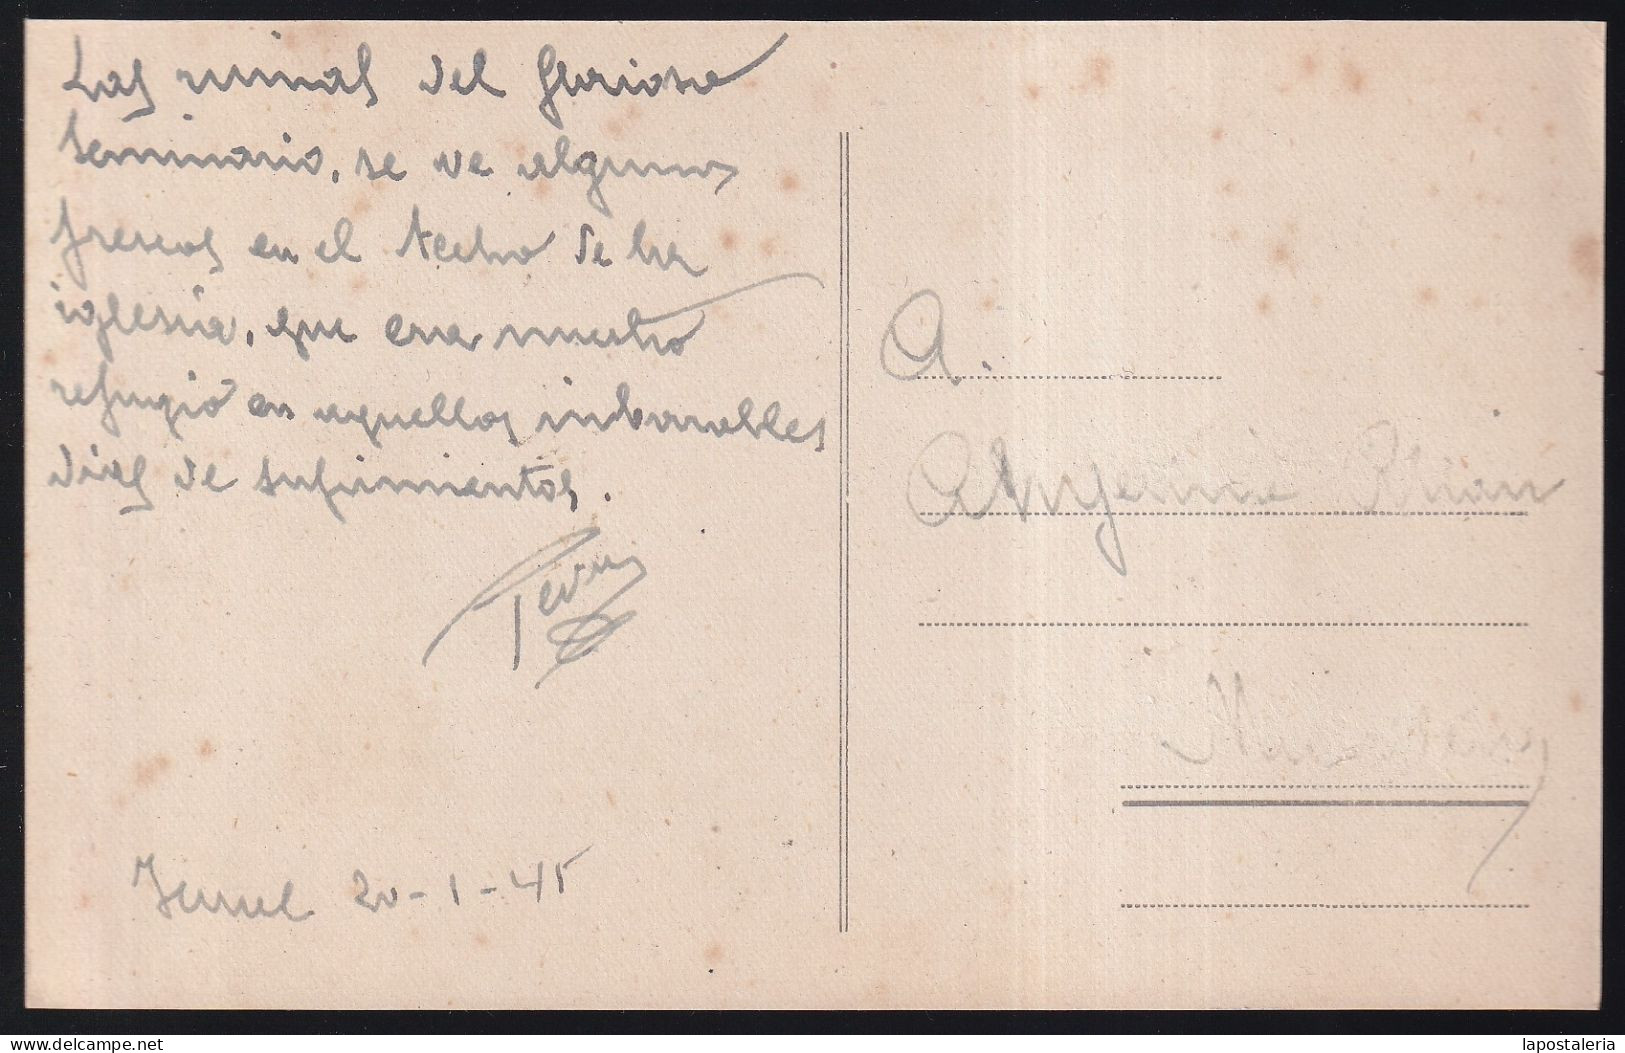 Las ruinas del glorioso
seminario, se ve algunos
frescos en el techo de la
iglesia, que era nuestro
refugio en aquellos imborrables
dias de sufrimientos.
Teruel 20-1-45
A.
Angelina
delcampe.net
lapostaleria